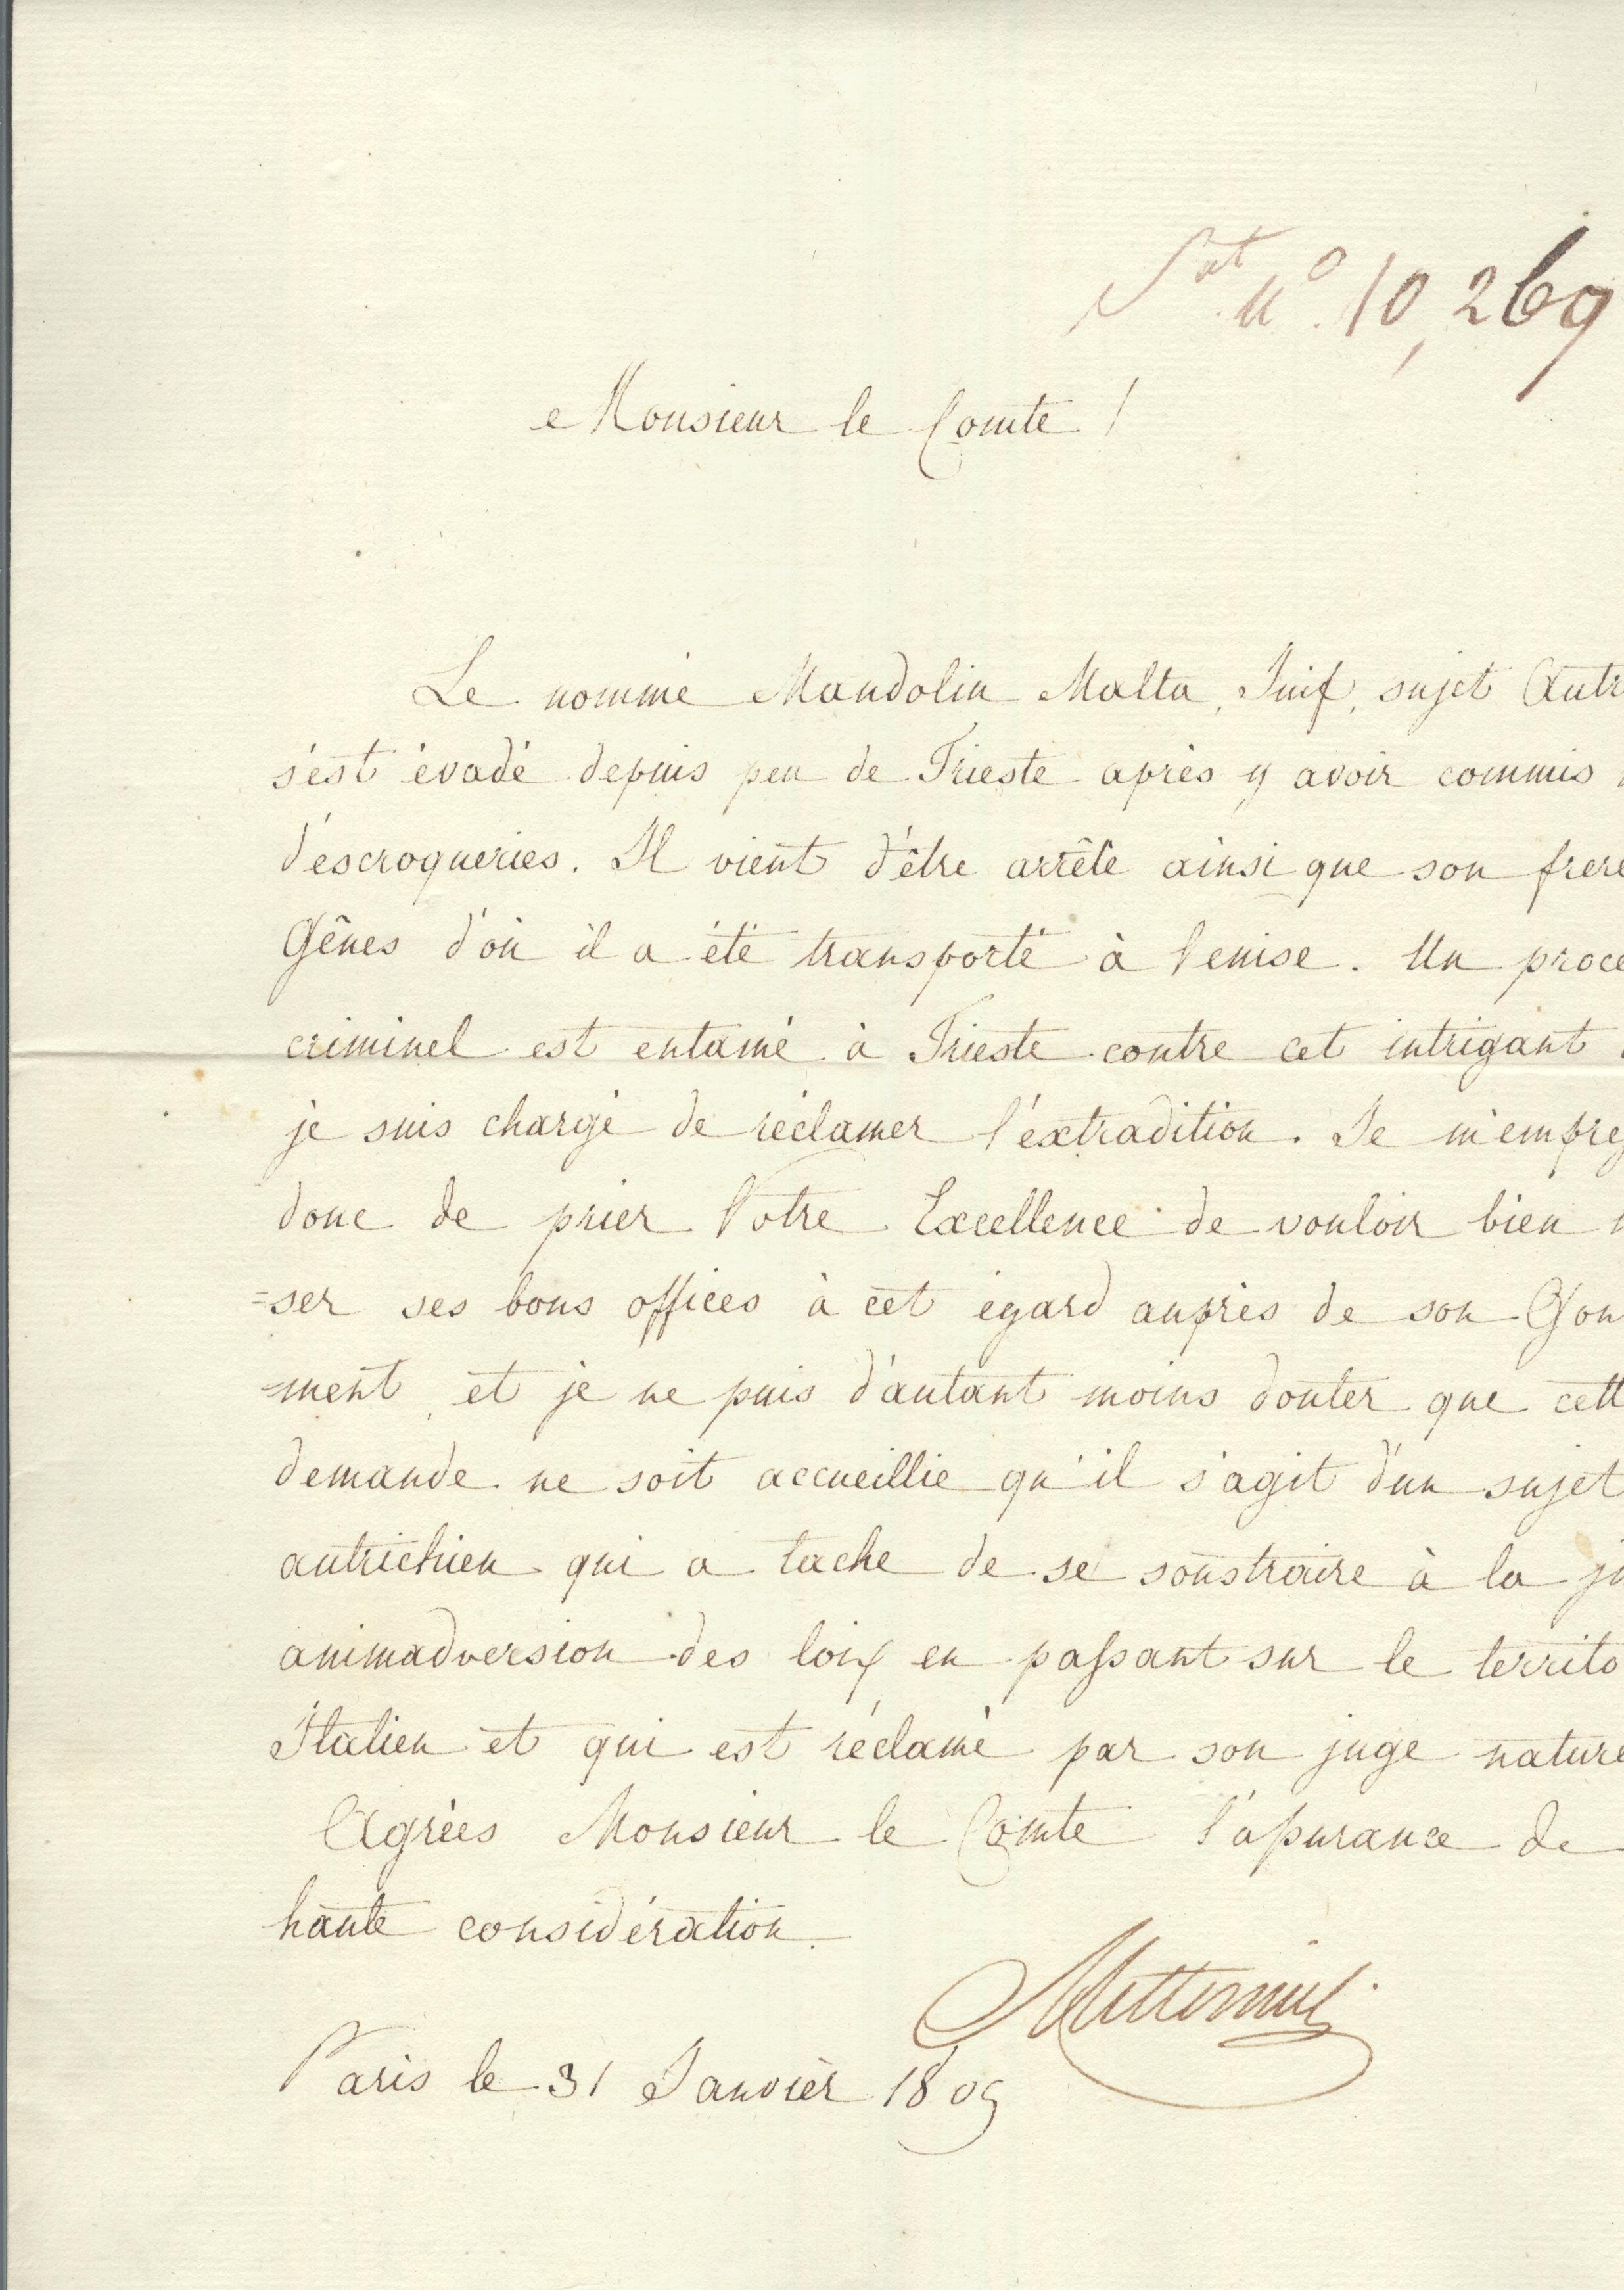 Pat. N.° 10,269
Monsieur le Comte !
Le nommé Mandolin Malta, Juif, sujet Autr
s'est évadé depuis peu de Trieste après y avoir commis
d'éscroqueries. Il vient d'être arrêté ainsi que son frere
Gênes d'où il a été transporté à Venise. Un proce
criminel est entamé à Trieste contre cet intrigant
je suis chargé de réclamer l'éxtradition. Je m'empre
donc de prier Votre Excellence de vouloir bien
=ser ses bons offices à cet égard auprès de son Gou
=ment, et je ne puis d'autant moins douter que cett
demande ne soit accueillie qu'il s'agit d'un sujet
autrichien qui a taché de se soustraire à la ju
animadversion des loix en passant sur le territo
Italien et qui est réclamé par son juge nature
Agrées Monsieur le Comte l'assurance de
haute considération.
Metternich
Paris le 31 Janvièr 1809